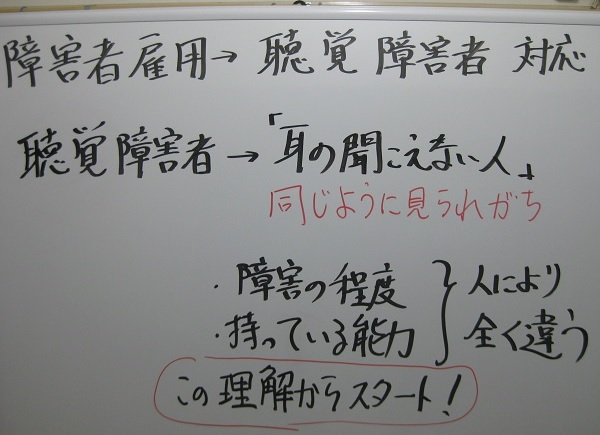 障害者雇用→聴覚障害者 対応
聴覚障害者→「耳の聞こえない人」
同じように見られがち
・障害の程度
・持っている能力
人により
全く違う
この理解からスタート!